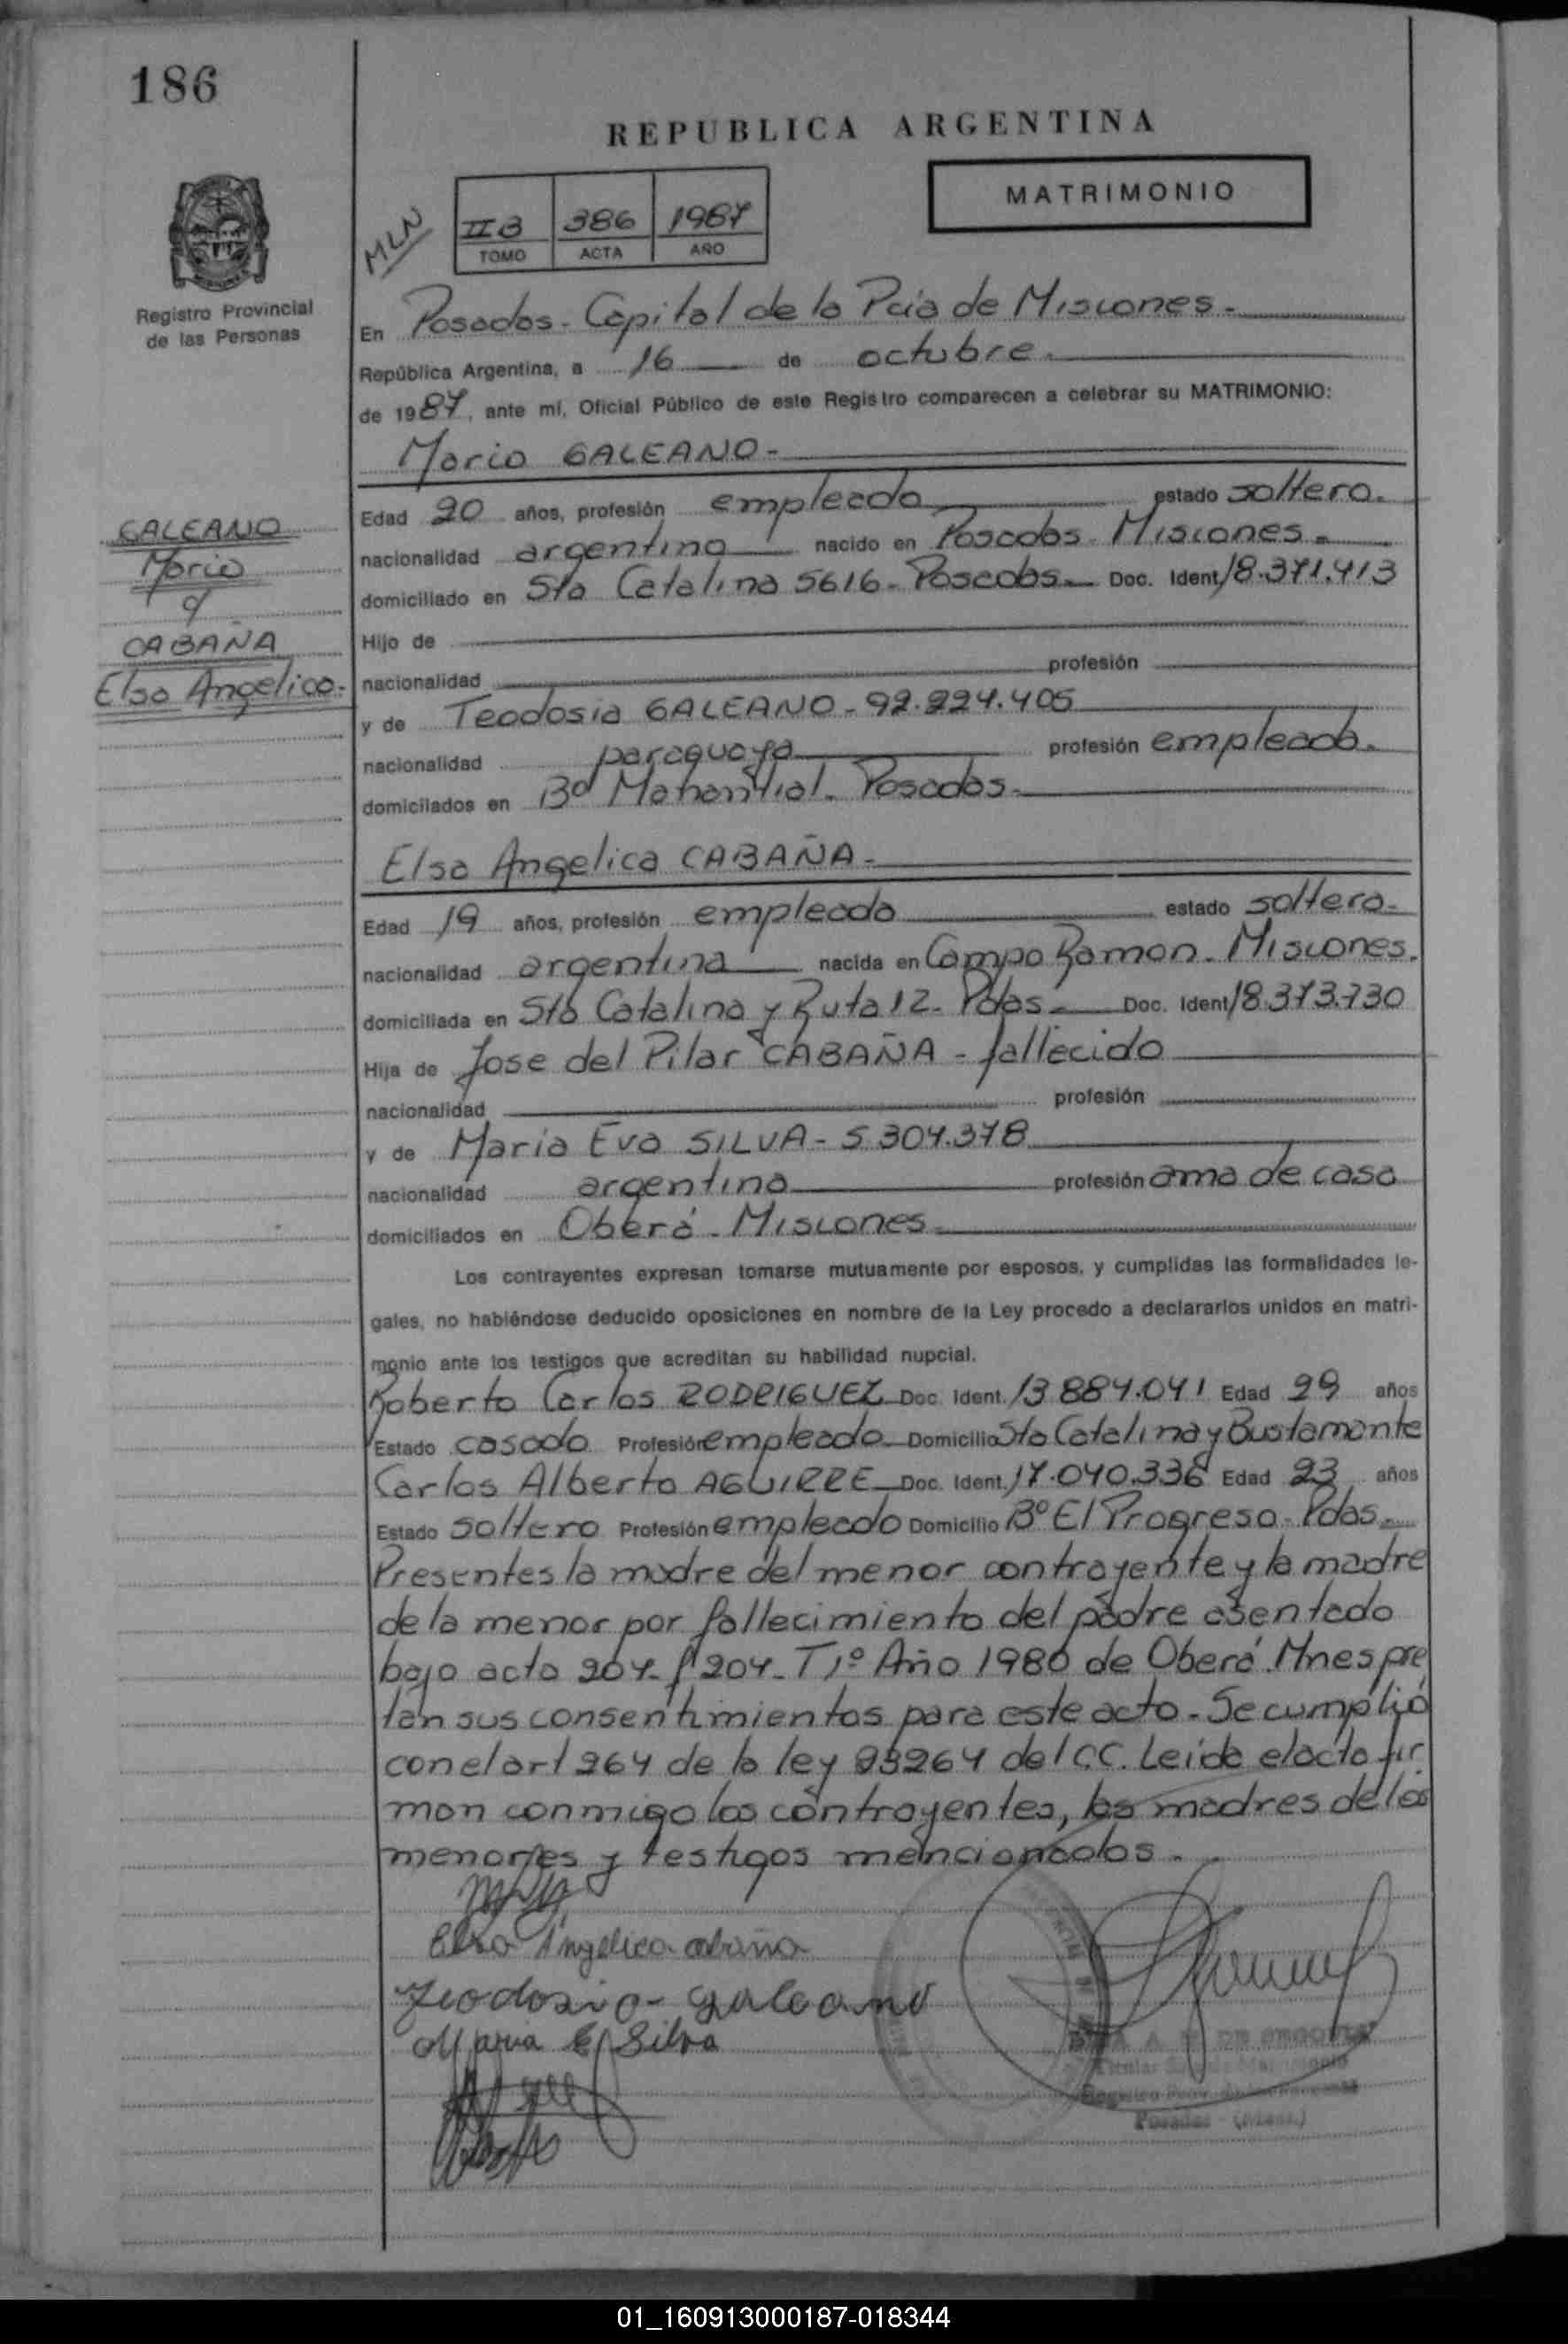 186
REPUBLICA ARGENTINA
MATRIMONIO
MLN
II B 386 1987
TOMO ACTA AÑO
Registro Provincial
de las Personas
En Posadas - Capital de la Pcia de Misiones.-
República Argentina, a 16 de octubre.
de 1987, ante mí, Oficial Público de este Registro comparecen a celebrar su MATRIMONIO:
Mario GALEANO-
Edad 20 años, profesión empleado estado soltero.
nacionalidad argentino nacido en Posadas - Misiones.-
domiciliado en Sta Catalina 5616 - Posadas.- Doc. Ident. 18.371.413
Hijo de
nacionalidad profesión
y de Teodosia GALEANO - 92.224.405
nacionalidad paraguaya profesión empleada.
domiciliados en Bº Manantial - Posadas.-
GALEANO
Mario
y
CABAÑA
Elsa Angelica.-
Elsa Angelica CABAÑA.-
Edad 19 años, profesión empleada estado soltera.-
nacionalidad argentina nacida en Campo Ramon - Misiones.
domiciliada en Sta Catalina y Ruta 12 - Pdas.- Doc. Ident. 18.373.730
Hija de Jose del Pilar CABAÑA - fallecido
nacionalidad profesión
y de Maria Eva SILVA - 5.307.378
nacionalidad argentina profesión ama de casa
domiciliados en Oberá - Misiones.-
Los contrayentes expresan tomarse mutuamente por esposos, y cumplidas las formalidades le-
gales, no habiéndose deducido oposiciones en nombre de la Ley procedo a declararlos unidos en matri-
monio ante los testigos que acreditan su habilidad nupcial.
Roberto Carlos RODRIGUEZ Doc. Ident. 13.887.041 Edad 29 años
Estado casado Profesión empleado Domicilio Sta Catalina y Bustamante
Carlos Alberto AGUIRRE Doc. Ident. 17.040.336 Edad 23 años
Estado soltero Profesión empleado Domicilio Bº El Progreso - Pdas.-
Presentes la madre del menor contrayente y la madre
de la menor por fallecimiento del padre asentado
bajo acta 204 - fº 204 - T 1º Año 1980 de Oberá. Mnes pre
tan sus consentimientos para este acto - Se cumplió
con el art 264 de la ley 23264 del C.C. Leida el acta fir
man conmigo los contrayentes, las madres de los
menores y testigos mencionados.
Elsa Angelica cabaña
Teodosia - galeano
Maria E Silva
Posadas - (Mnes.)
01_160913000187-018344